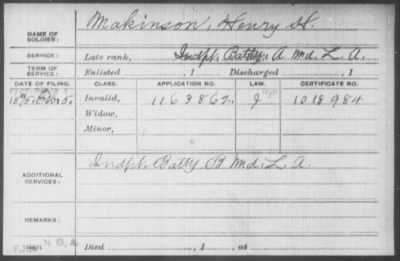 NAME OF SOLDIER: Makinson, Henry H.
SERVICE: Late rank, Indpt. Batty. A Md. L. A.
TERM OF SERVICE: Enlisted , 1 Discharged , 1
DATE OF FILING. CLASS. APPLICATION NO. LAW. CERTIFICATE NO.
1895, Invalid, 1163862, J 1018984
Widow,
Minor,
ADDITIONAL SERVICES: Indpt. Batty B Md. L. A.
REMARKS:
Died , 1 , at